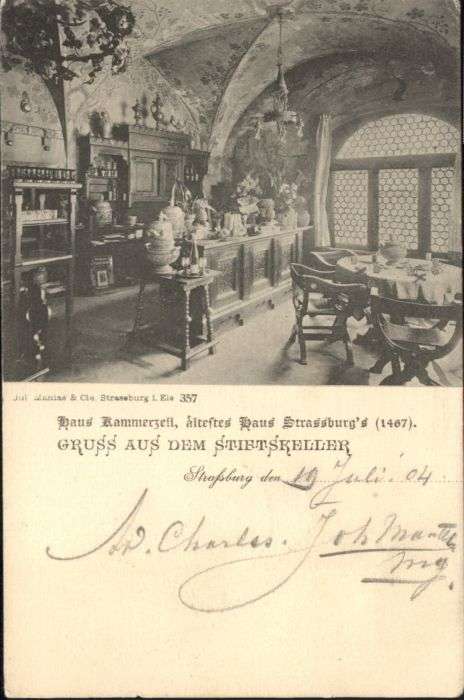 Jul. Manias & Cie. Strassburg i. Els 357
Haus Kammerzell, ältestes Haus Strassburg's (1467).
GRUSS AUS DEM STIFTSKELLER
Straßburg den 19 Juli. 04.
Charles. Joh